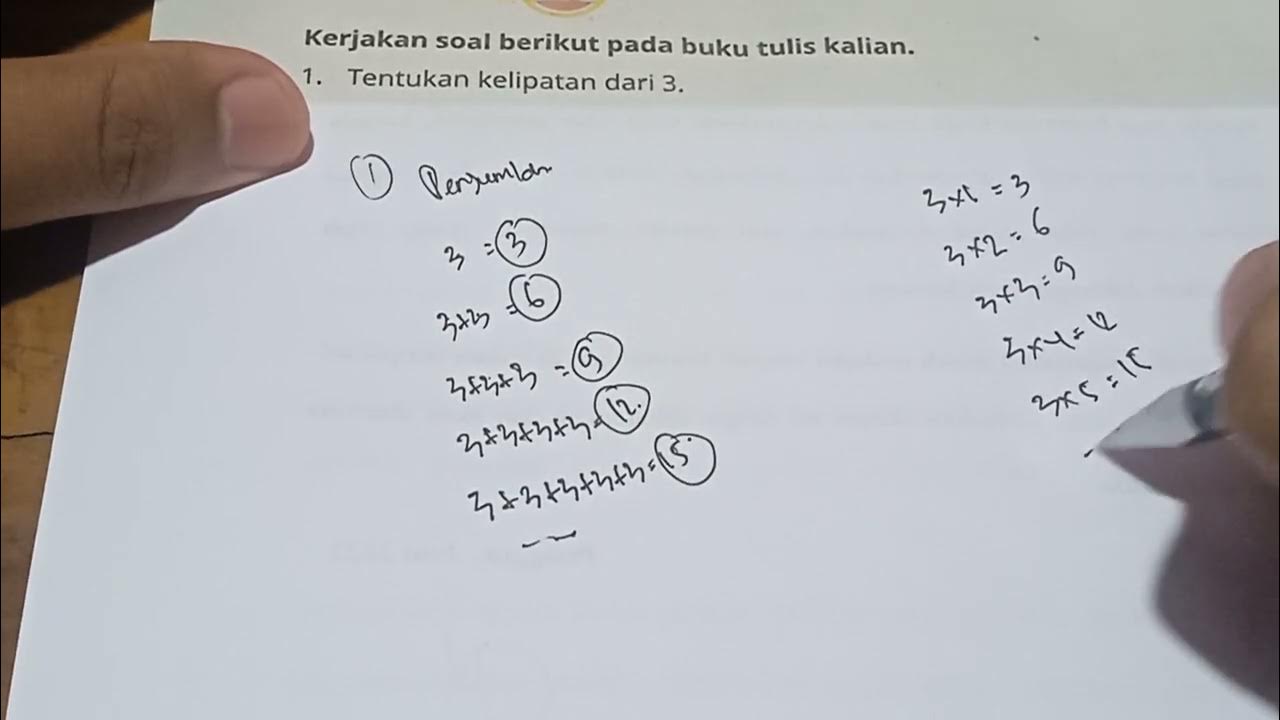 Kerjakan soal berikut pada buku tulis kalian.
1. Tentukan kelipatan dari 3.
1 Penjumlah
3 = 3
3+3 = 6
3+3+3 = 9
3+3+3+3 = 12
3+3+3+3+3 = 15
3×1 = 3
3×2 = 6
3×3 = 9
3×4 = 12
3×5 = 15